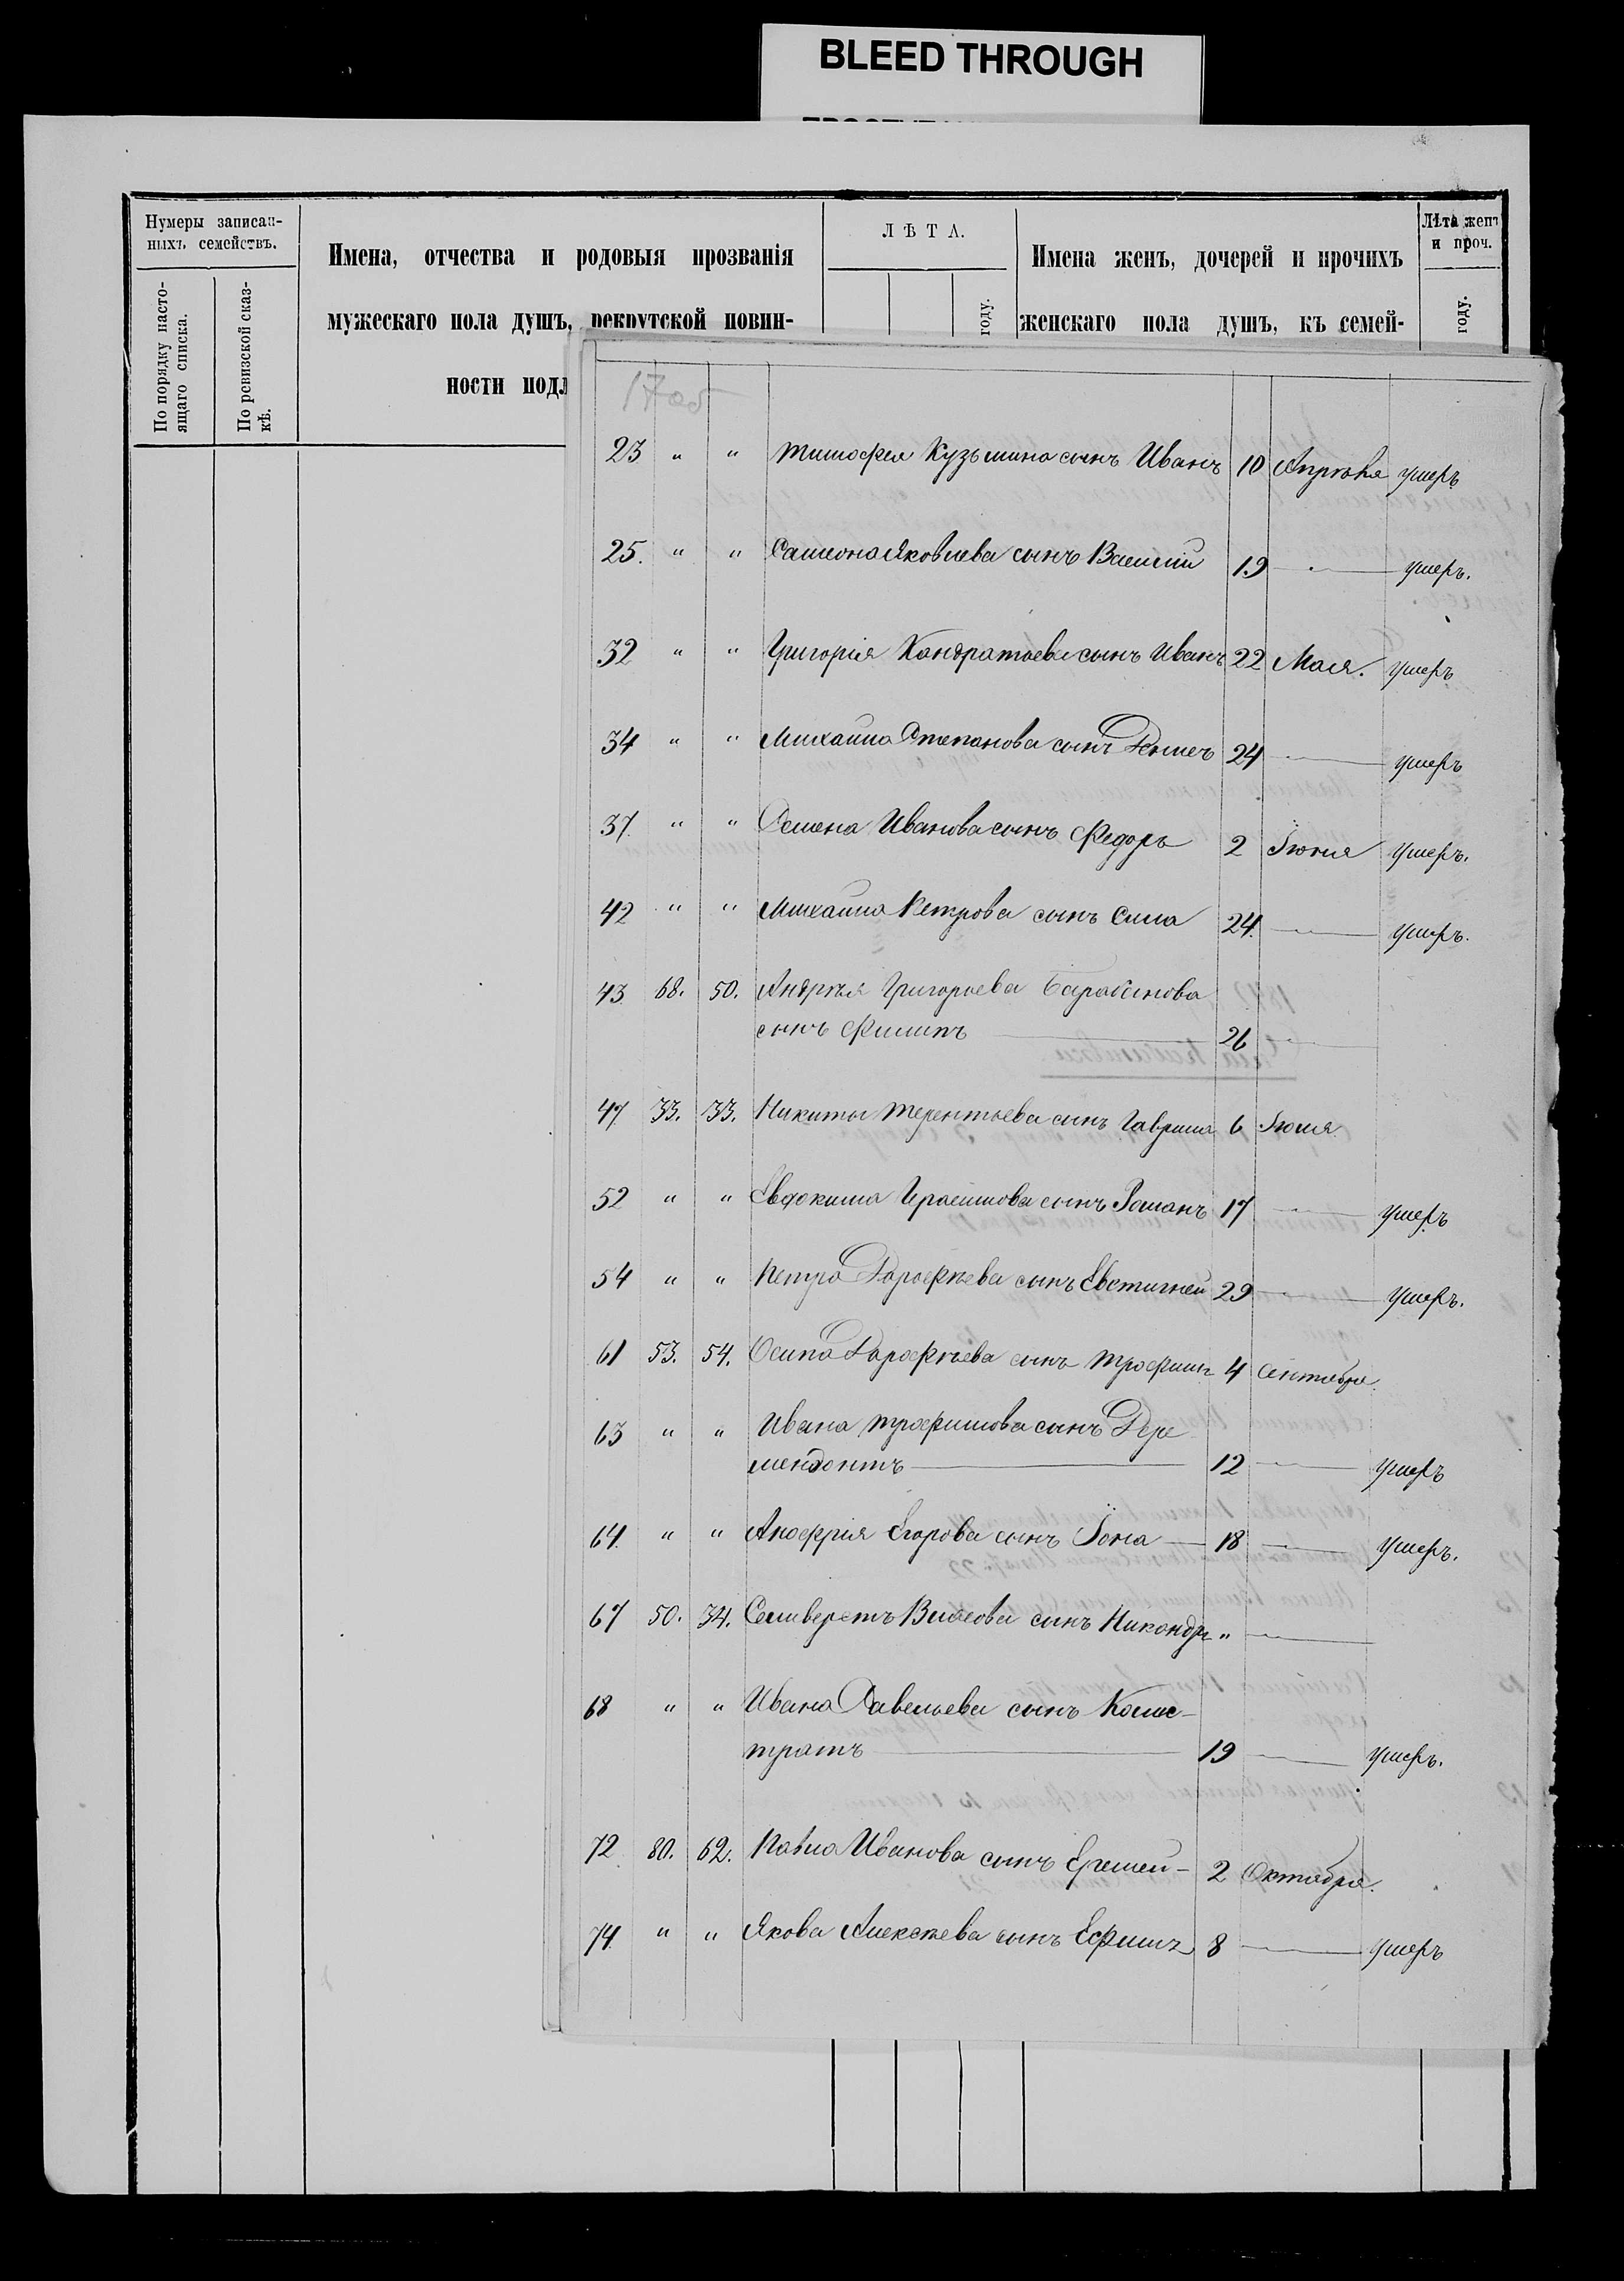 BLEED THROUGH
Нумеры записан-
ныхъ семействъ.
По порядку насто-
ящаго списка.
По ревизской сказ-
кѣ.
Имена, отчества и родовыя прозванія
мужескаго пола душъ, рекрутской повин-
ности подл
ЛѢТА.
году.
Имена женъ, дочерей и прочихъ
женскаго пола душъ, къ семей-
Лѣта женъ
и проч.
году.
17об
23 " " Тимофея Кузьмина сынъ Иванъ 10 Апрѣля умеръ
25. " " Самиона Яковлева сынъ Василій 19 — " — умеръ.
32 " " Григорія Кондратьева сынъ Иванъ 22 Мая. умеръ
34 " " Михаила Степанова сынъ 24 — " — умеръ
37 " " Семена Иванова сынъ Федоръ 2 Іюня умеръ.
42 " " Михаила Петрова сынъ Сила 24. — " — умеръ.
43 68. 50. Андрѣя Григорьева Барабанова
сынъ Филипъ — 26 — " —
47 33. 33. Никиты Терентьева сынъ Гаврила 6 Іюля
52 " " Евдокима Герасимова сынъ Романъ 17 — " — умеръ
54 " " Петра Дорофѣева сынъ Евстигней 29 — " — умеръ.
61 53. 54. Осипа Дорофѣева сынъ Трофимъ 4 Сентября.
63 " " Ивана Трофимова сынъ Дере
мендонтъ — 12 — " — умеръ
64. " " Аноффрія Егорова сынъ Іона — 18 — " — умеръ.
67 50. 34. Селиверстъ Власова сынъ Никондръ " — " —
68 " " Ивана Савельева сынъ Колис-
тратъ — 19 — " — умеръ.
72 80. 62. Павла Иванова сынъ Еремей - 2 Октября.
74. " " Якова Алексѣева сынъ Ефимъ 8 — " — умеръ